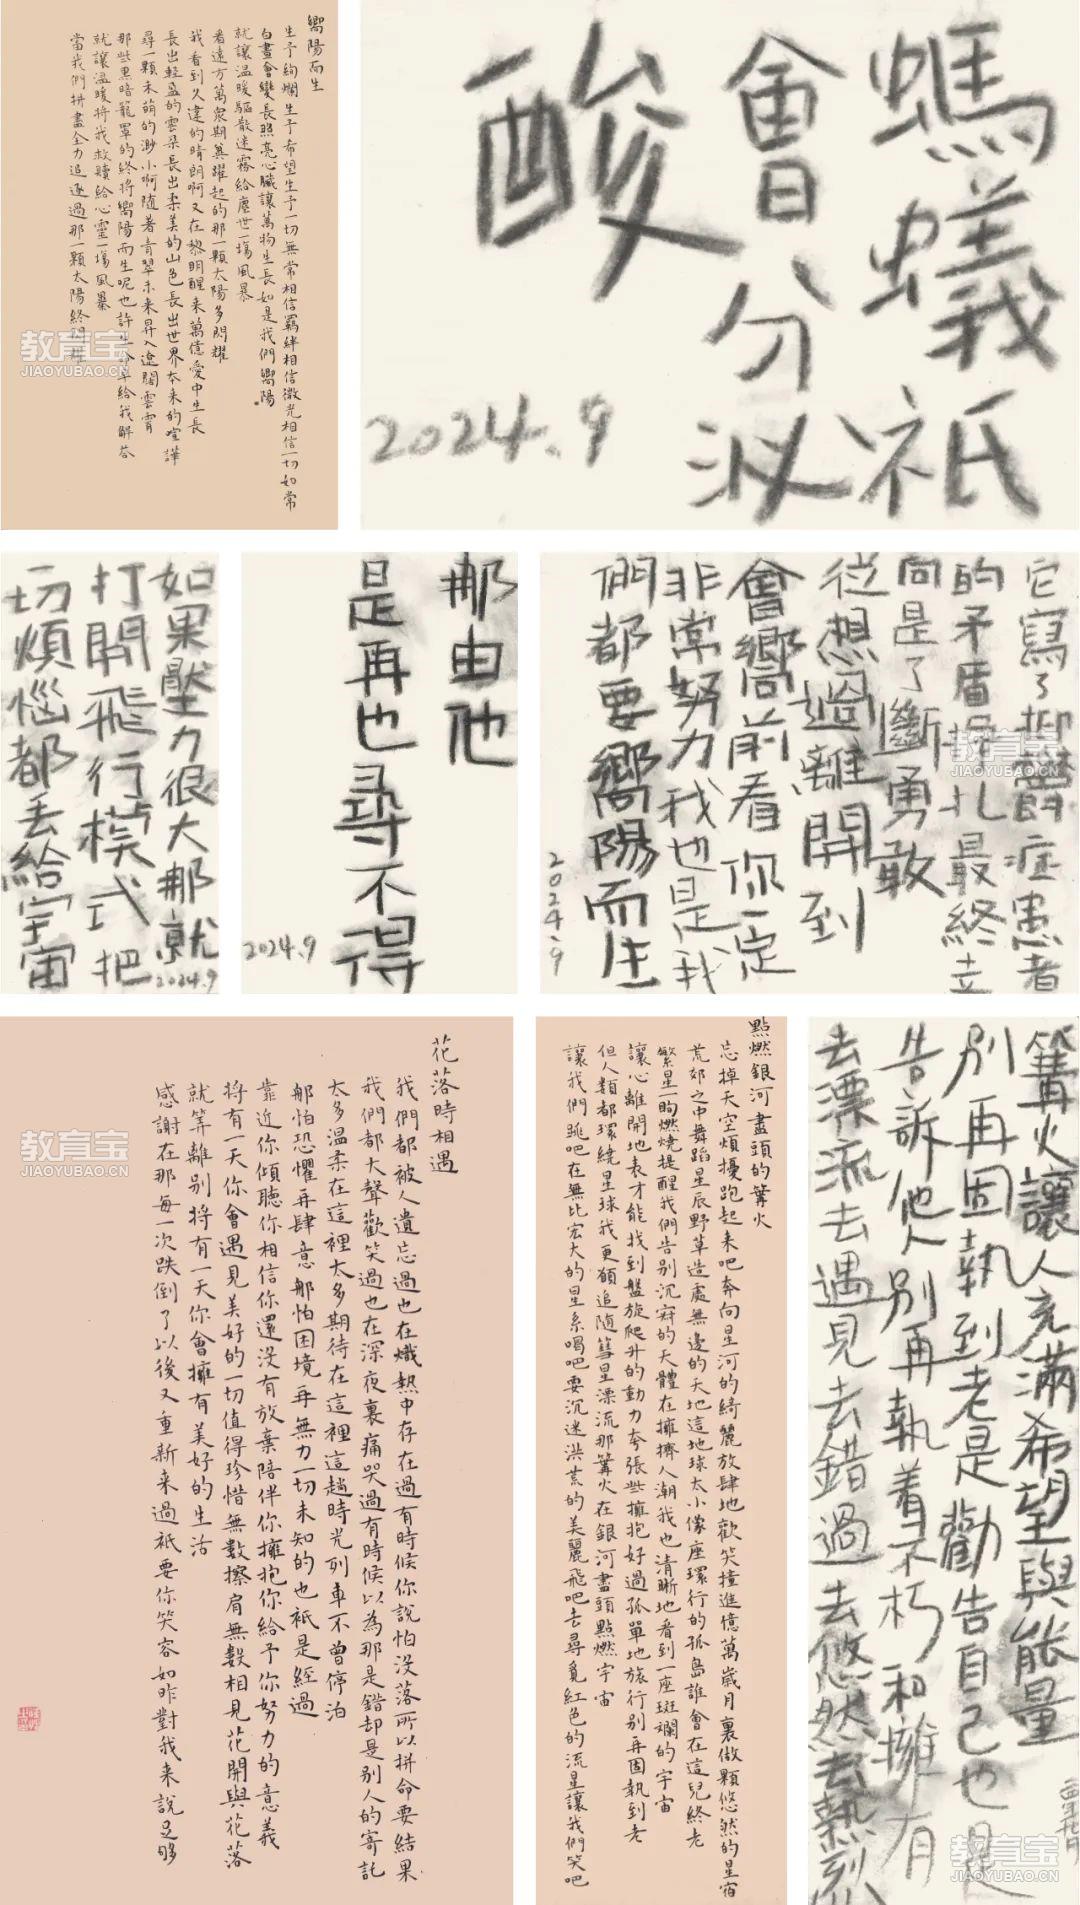 嚮陽而生
生予絢爛生予希望生予一切無常相信羁絆相信微光相信一切如常
白晝會變長照亮心臟讓萬物生長如是我們嚮陽
就讓温暖驅散迷霧給塵世一場風暴
看遠方萬衆期冀躍起的那一顆太陽多閃耀
我看到久違的晴朗啊又在黎明醒来萬億愛中生長
長出輕盈的雲朵長出柔美的山色長出世界本来的喧譁
尋一顆未萌的渺小啊随著青翠未来昇入遼闊雲霄
那些黑暗籠罩的終將嚮陽而生呢也許生命早給我解答
就讓温暖將我救贖給心靈一場風暴
當我們拼盡全力追逐過那一顆太陽終閃耀
螞蟻祇
會分泌
酸
2024.9
如果壓力很大那就
打開飛行模式把
切煩惱都丢給宇宙
2024.9
那由他
是再也尋不得
2024.9
它寫了抑鬱症患者
的矛盾掙扎最終走
向是了斷勇敢
從想過離開到
會嚮前看你一定
非常努力我也是我
們都要嚮陽而生
2024.9
花落時相遇
我們都被人遺忘過也在熾熱中存在過有時候你說怕没落所以拼命要結果
我們都大聲歡笑過也在深夜裏痛哭過有時候以為那是錯却是别人的寄託
太多温柔在這裡太多期待在這裡這趟時光列車不曾停泊
那怕恐懼再肆意那怕困境再無力一切未知的也衹是經過
靠近你傾聽你相信你還没有放棄陪伴你擁抱你給予你努力的意義
將有一天你會遇見美好的一切值得珍惜無數擦肩無數相見花開與花落
就算離别將有一天你會擁有美好的生活
感謝在那每一次跌倒了以後又重新来過衹要你笑容如昨對我来說足够
點燃銀河盡頭的篝火
忘掉天空煩擾跑起来吧奔向星河的綺麗放肆地歡笑撞進億萬歲月裏做顆悠然的星宿
荒郊之中舞蹈星辰野草造處無邊的天地這地球太小像座環行的孤島誰會在這兒終老
繁星一眴燃燒提醒我們告别沉寂的天體在擁擠人潮我也清晰地看到一座斑斕的宇宙
讓心離開地表才能找到盤旋爬升的動力夸張些擁抱好過孤單地旅行别再固執到老
但人類都環繞星球我更願追随彗星漂流那篝火在銀河盡頭點燃宇宙
讓我們跳吧在無比宏大的星系唱吧要沉迷洪荒的美麗飛吧去尋覓紅色的流星讓我們笑吧
篝火讓人充滿希望與能量
别再固執到老是勸告自己也是
告訴他人别再執着不朽和擁有
去漂流去遇見去錯過去悠然去熱烈
教育宝
JIAOYUBAO.CN
教育宝
JIAOYUBAO.CN
教育宝
JIAOYUBAO.CN
教育宝
JIAOYUBAO.CN